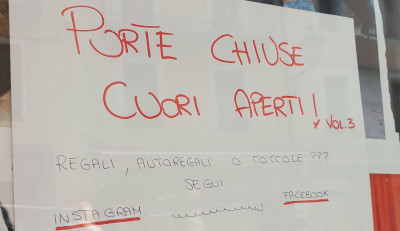 PORTE CHIUSE
CUORI APERTI!
VOL.3
REGALI, AUTOREGALI O COCCOLE ???
SEGUI
INSTAGRAM FACEBOOK